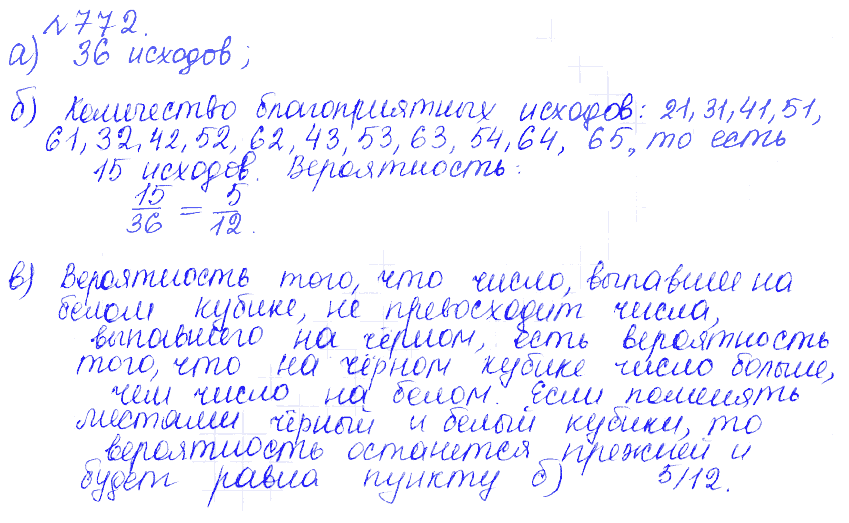 №772.
а) 36 исходов;
б) Количество благоприятных исходов: 21, 31, 41, 51,
61, 32, 42, 52, 62, 43, 53, 63, 54, 64, 65, то есть
15 исходов. Вероятность:
15/36 = 5/12.
в) Вероятность того, что число, выпавшее на
белом кубике, не превосходит числа,
выпавшего на чёрном, есть вероятность
того, что на чёрном кубике число больше,
чем число на белом. Если поменять
местами чёрный и белый кубики, то
вероятность останется прежней и
будет равна пункту б) 5/12.